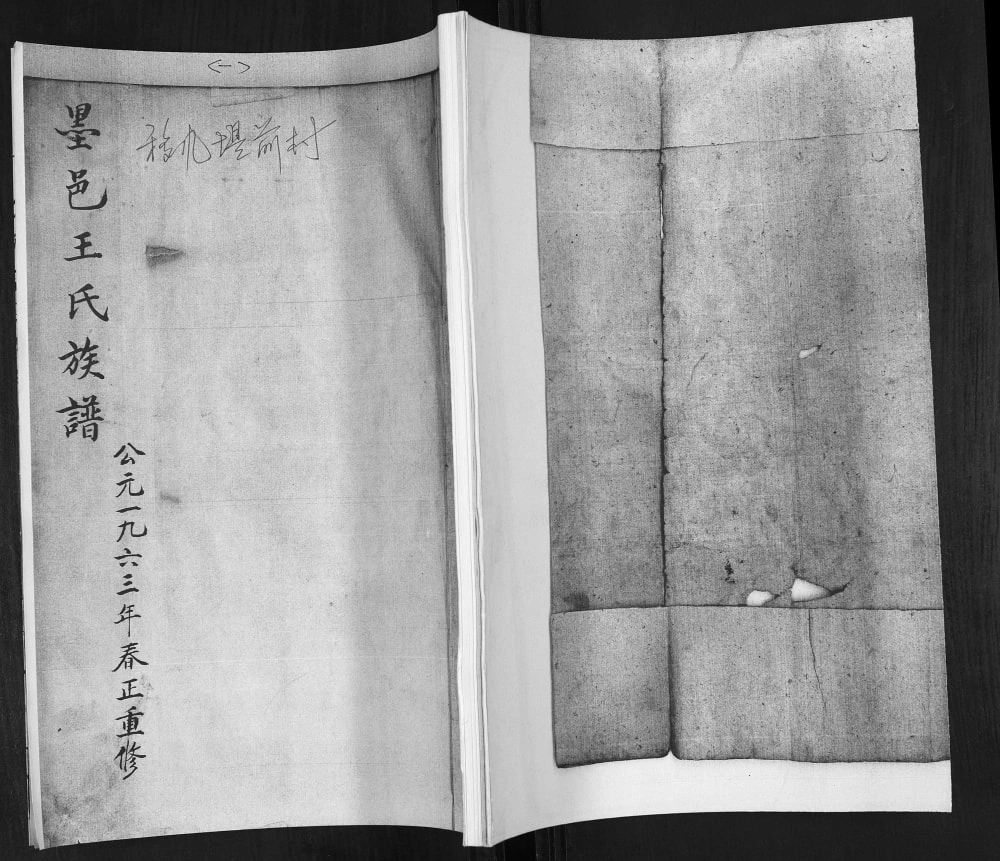 <一>
移九堤前村
墨邑王氏族譜
公元一九六三年春正重修